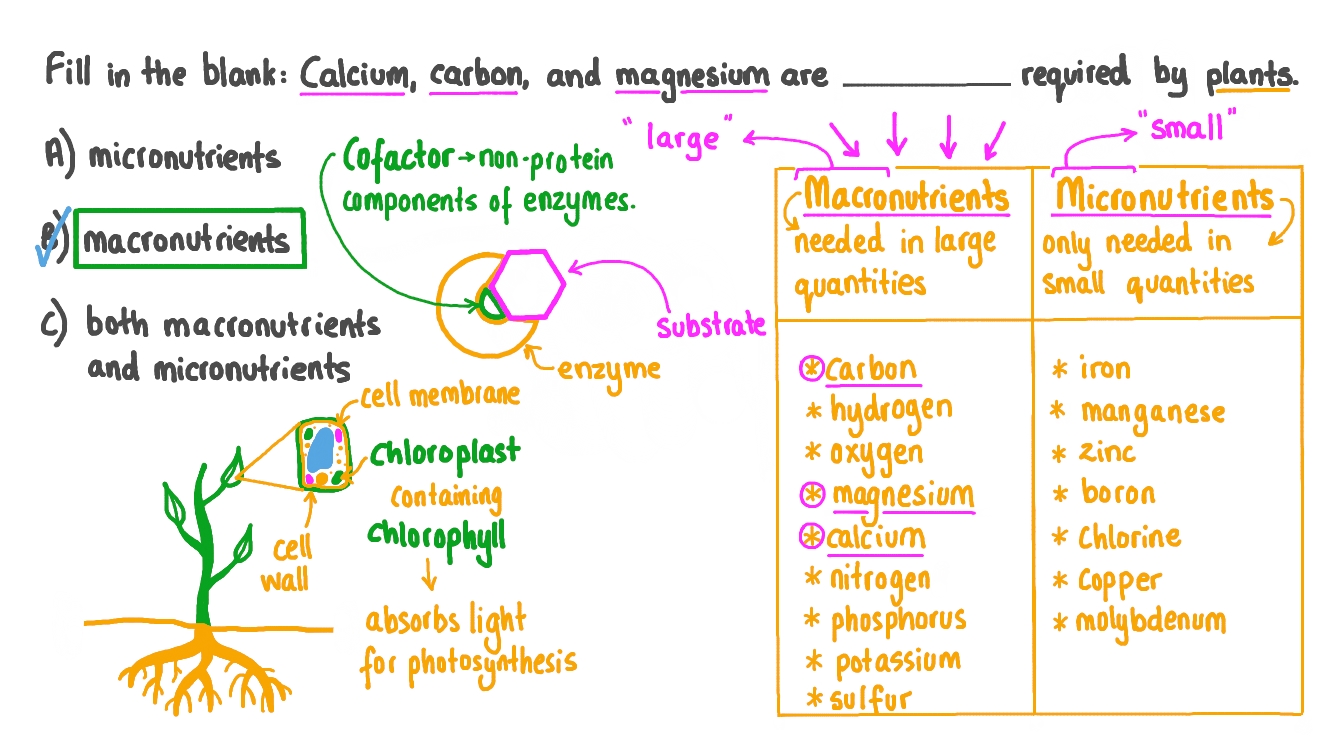 Fill in the blank: Calcium, carbon, and magnesium are __________ required by plants.
A) micronutrients
B) macronutrients
C) both macronutrients
and micronutrients
Cofactor → non-protein
components of enzymes.
substrate
enzyme
cell membrane
chloroplast
containing
chlorophyll
absorbs light
for photosynthesis
cell
wall
"large"
"small"
Macronutrients
needed in large
quantities
* carbon
* hydrogen
* oxygen
* magnesium
* calcium
* nitrogen
* phosphorus
* potassium
* sulfur
Micronutrients
only needed in
small quantities
* iron
* manganese
* zinc
* boron
* chlorine
* copper
* molybdenum